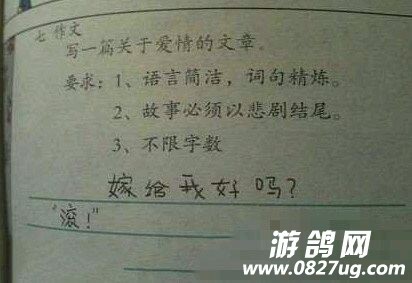 七 作文
写一篇关于爱情的文章。
要求：1、语言简洁，词句精炼。
2、故事必须以悲剧结尾。
3、不限字数
嫁给我好吗？
“滚！”
游鸽网
www.0827ug.com